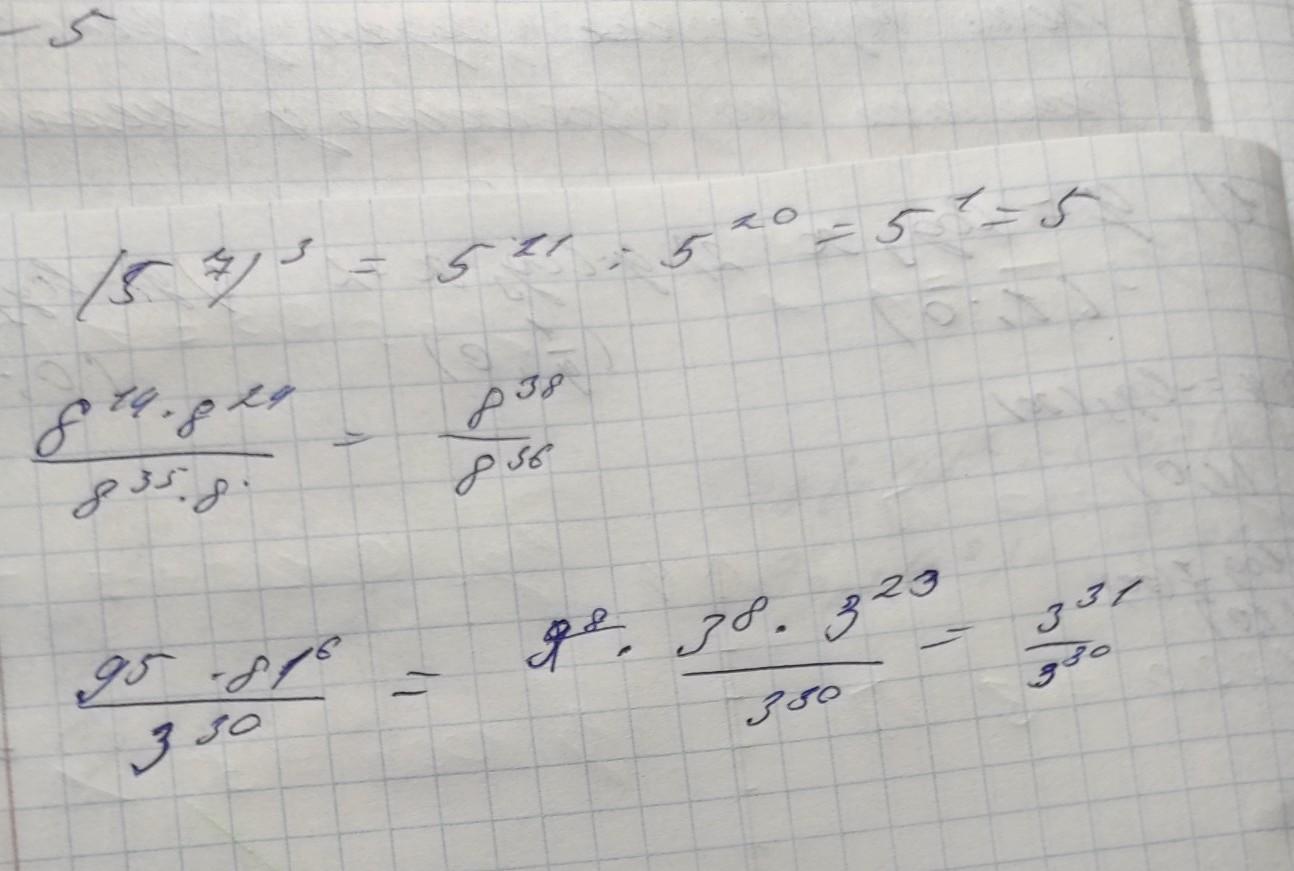 - 5
(5^7)^3 = 5^21 : 5^20 = 5^1 = 5
(8^14 · 8^24)/(8^35 · 8) = 8^38/8^36
(9^5 · 81^6)/3^30 = (3^8 · 3^23)/3^30 = 3^31/3^30